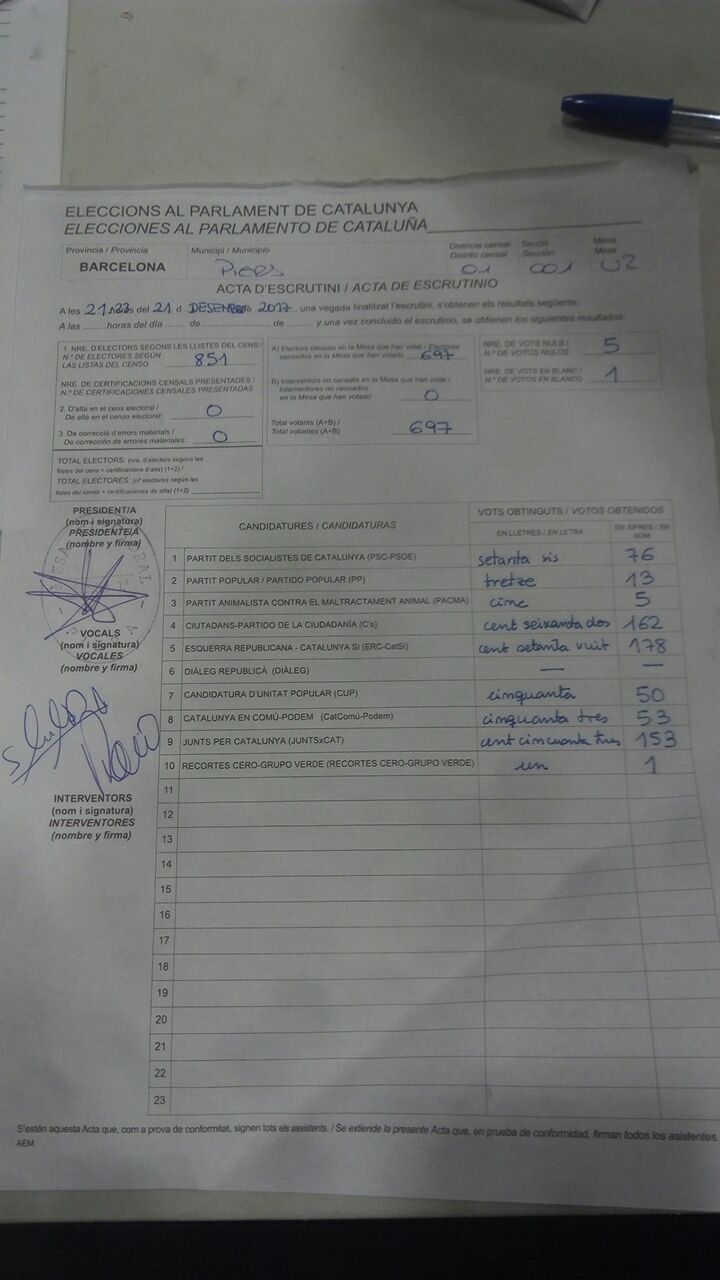 ELECCIONS AL PARLAMENT DE CATALUNYA
ELECCIONES AL PARLAMENTO DE CATALUÑA
Província / Provincia
BARCELONA
Municipi / Municipio
Piera
Districte censal
Distrito censal
01
Secció
Sección
001
Mesa
Mesa
U2
ACTA D'ESCRUTINI / ACTA DE ESCRUTINIO
A les 21.23 hores del 21 d DESEMBRE 2017, una vegada finalitzat l'escrutini, s'obtenen els resultats següents:
A las ......... horas del día ....... de .............. de ......., y una vez concluido el escrutinio, se obtienen los siguientes resultados:
1. NRE. D'ELECTORS SEGONS LES LLISTES DEL CENS /
N.º DE ELECTORES SEGÚN
LAS LISTAS DEL CENSO 851
NRE. DE CERTIFICACIONS CENSALS PRESENTADES /
N.º DE CERTIFICACIONES CENSALES PRESENTADAS
2. D'alta en el cens electoral /
De alta en el censo electoral: 0
3. De correcció d'errors materials /
De corrección de errores materiales: 0
TOTAL ELECTORS: (nre. d'electors segons les
llistes del cens + certificacions d'alta) (1+2) /
TOTAL ELECTORES: (nº electores según las
listas del censo + certificaciones de alta) (1+2)
A) Electors censats en la Mesa que han votat / Electores
censados en la Mesa que han votado 697
B) Interventors no censats en la Mesa que han votat /
Interventores no censados
en la Mesa que han votado 0
Total votants (A+B) /
Total votantes (A+B) 697
NRE. DE VOTS NULS /
N.º DE VOTOS NULOS 5
NRE. DE VOTS EN BLANC /
N.º DE VOTOS EN BLANCO 1
PRESIDENT/A
(nom i signatura)
PRESIDENTE/A
(nombre y firma)
VOCALS
(nom i signatura)
VOCALES
(nombre y firma)
INTERVENTORS
(nom i signatura)
INTERVENTORES
(nombre y firma)
CANDIDATURES / CANDIDATURAS
VOTS OBTINGUTS / VOTOS OBTENIDOS
EN LLETRES / EN LETRA
EN XIFRES / EN NÚM
1 PARTIT DELS SOCIALISTES DE CATALUNYA (PSC-PSOE) setanta sis 76
2 PARTIT POPULAR / PARTIDO POPULAR (PP) tretze 13
3 PARTIT ANIMALISTA CONTRA EL MALTRACTAMENT ANIMAL (PACMA) cinc 5
4 CIUTADANS-PARTIDO DE LA CIUDADANÍA (C's) cent seixanta dos 162
5 ESQUERRA REPUBLICANA - CATALUNYA SÍ (ERC-CatSí) cent setanta vuit 178
6 DIÀLEG REPUBLICÀ (DIÀLEG) — —
7 CANDIDATURA D'UNITAT POPULAR (CUP) cinquanta 50
8 CATALUNYA EN COMÚ-PODEM (CatComú-Podem) cinquanta tres 53
9 JUNTS PER CATALUNYA (JUNTSxCAT) cent cincuanta tres 153
10 RECORTES CERO-GRUPO VERDE (RECORTES CERO-GRUPO VERDE) un 1
11
12
13
14
15
16
17
18
19
20
21
22
23
S'estén aquesta Acta que, com a prova de conformitat, signen tots els assistents. / Se extiende la presente Acta que, en prueba de conformidad, firman todos los asistentes.
AEM